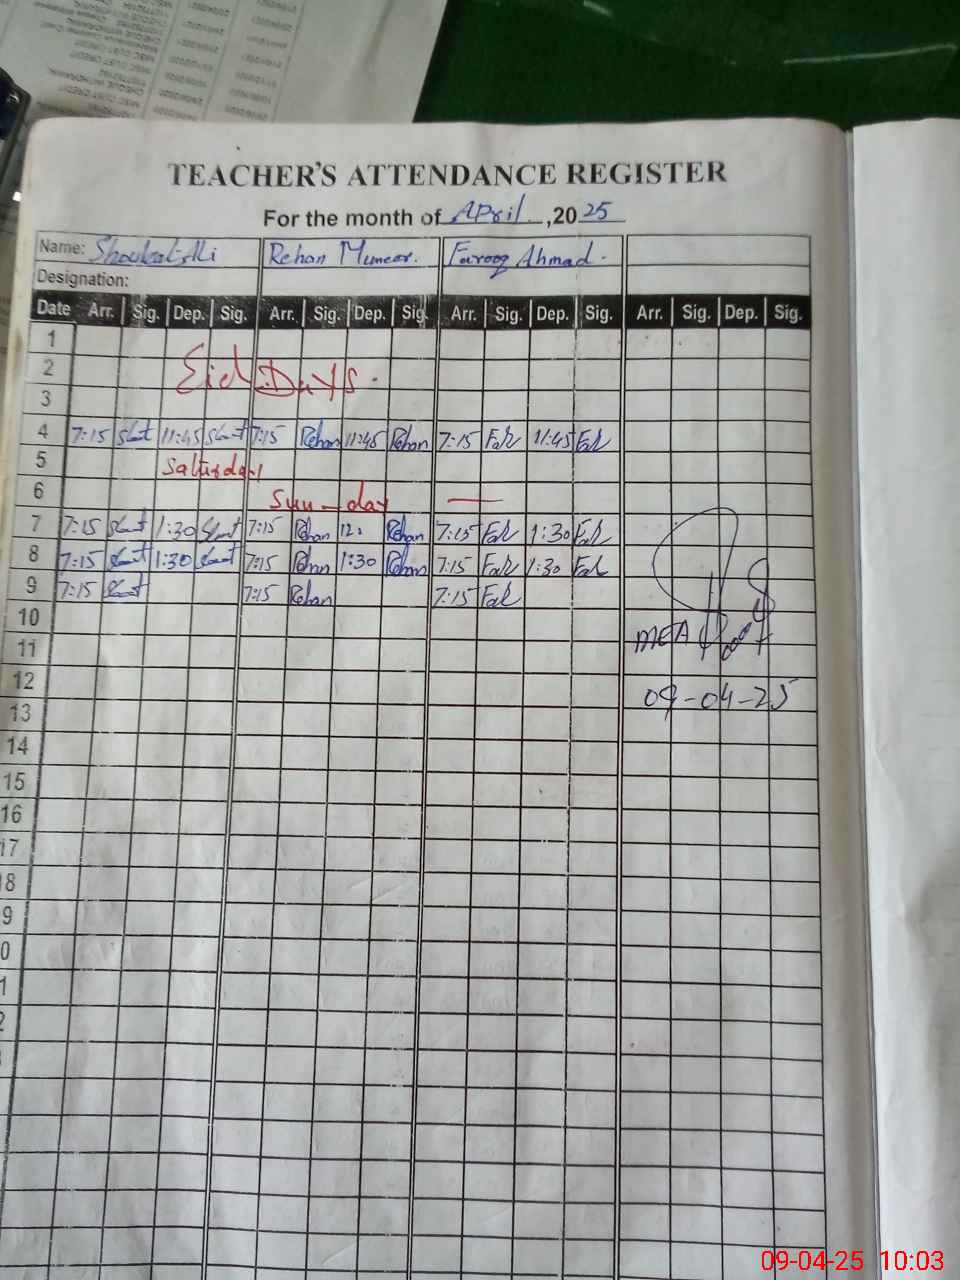 TEACHER'S ATTENDANCE REGISTER
For the month of April, 2025
Name: Shoukat Ali Rehan Muneer. Farooq Ahmad.
Designation:
Date Arr. Sig. Dep. Sig. Arr. Sig. Dep. Sig. Arr. Sig. Dep. Sig. Arr. Sig. Dep. Sig.
1
2 Eid Days.
3
4 7:15 11:45 7:15 Rehan 11:45 Rehan 7:15 Far 11:45 Far
5 Saturday
6 Sun-day
7 7:15 1:30 7:15 Rehan Rehan 7:15 Far 1:30 Far
8 7:15 1:30 7:15 Rehan 1:30 Rehan 7:15 Far 1:30 Far
9 7:15 7:15 Rehan 7:15 Far
10
11 MEA
12
13 09-04-25
14
15
16
17
18
9
0
1
2
09-04-25 10:03